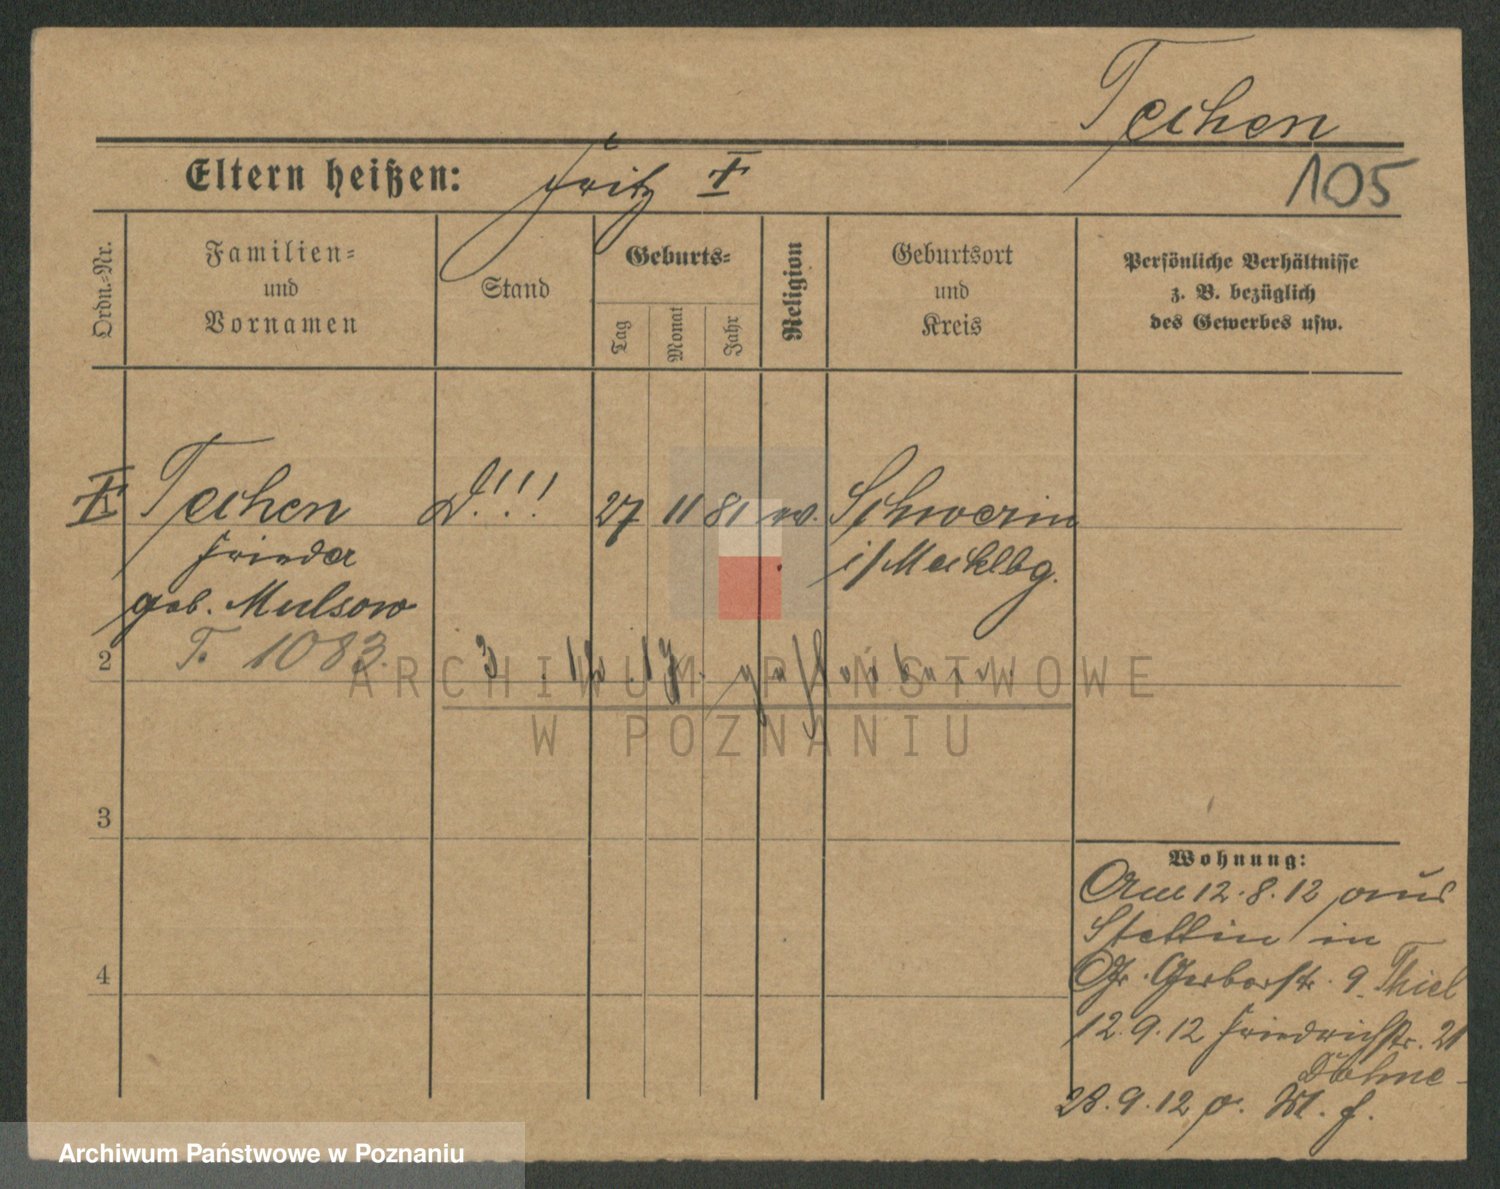 Techen
Eltern heißen: Fritz
105
Ordn.=Nr.
Familien=
und
Vornamen
Stand
Geburts=
Tag
Monat
Jahr
Religion
Geburtsort
und
Kreis
Persönliche Verhältnisse
z. B. bezüglich
des Gewerbes usw.
Techen !!! 27 11 81 ev. Schwerin
Frieda i/Mecklbg.
geb. Mulsow
T. 1083.
2 3. 12. 17. gestorben.
ARCHIWUM PAŃSTWOWE
W POZNANIU
3
4
Wohnung:
Am 12.8.12 aus
Stettin in
Gr. Gerberstr. 9 Thiel
12.9.12 Friedrichstr. 21
Böhme
28.9.12
Archiwum Państwowe w Poznaniu